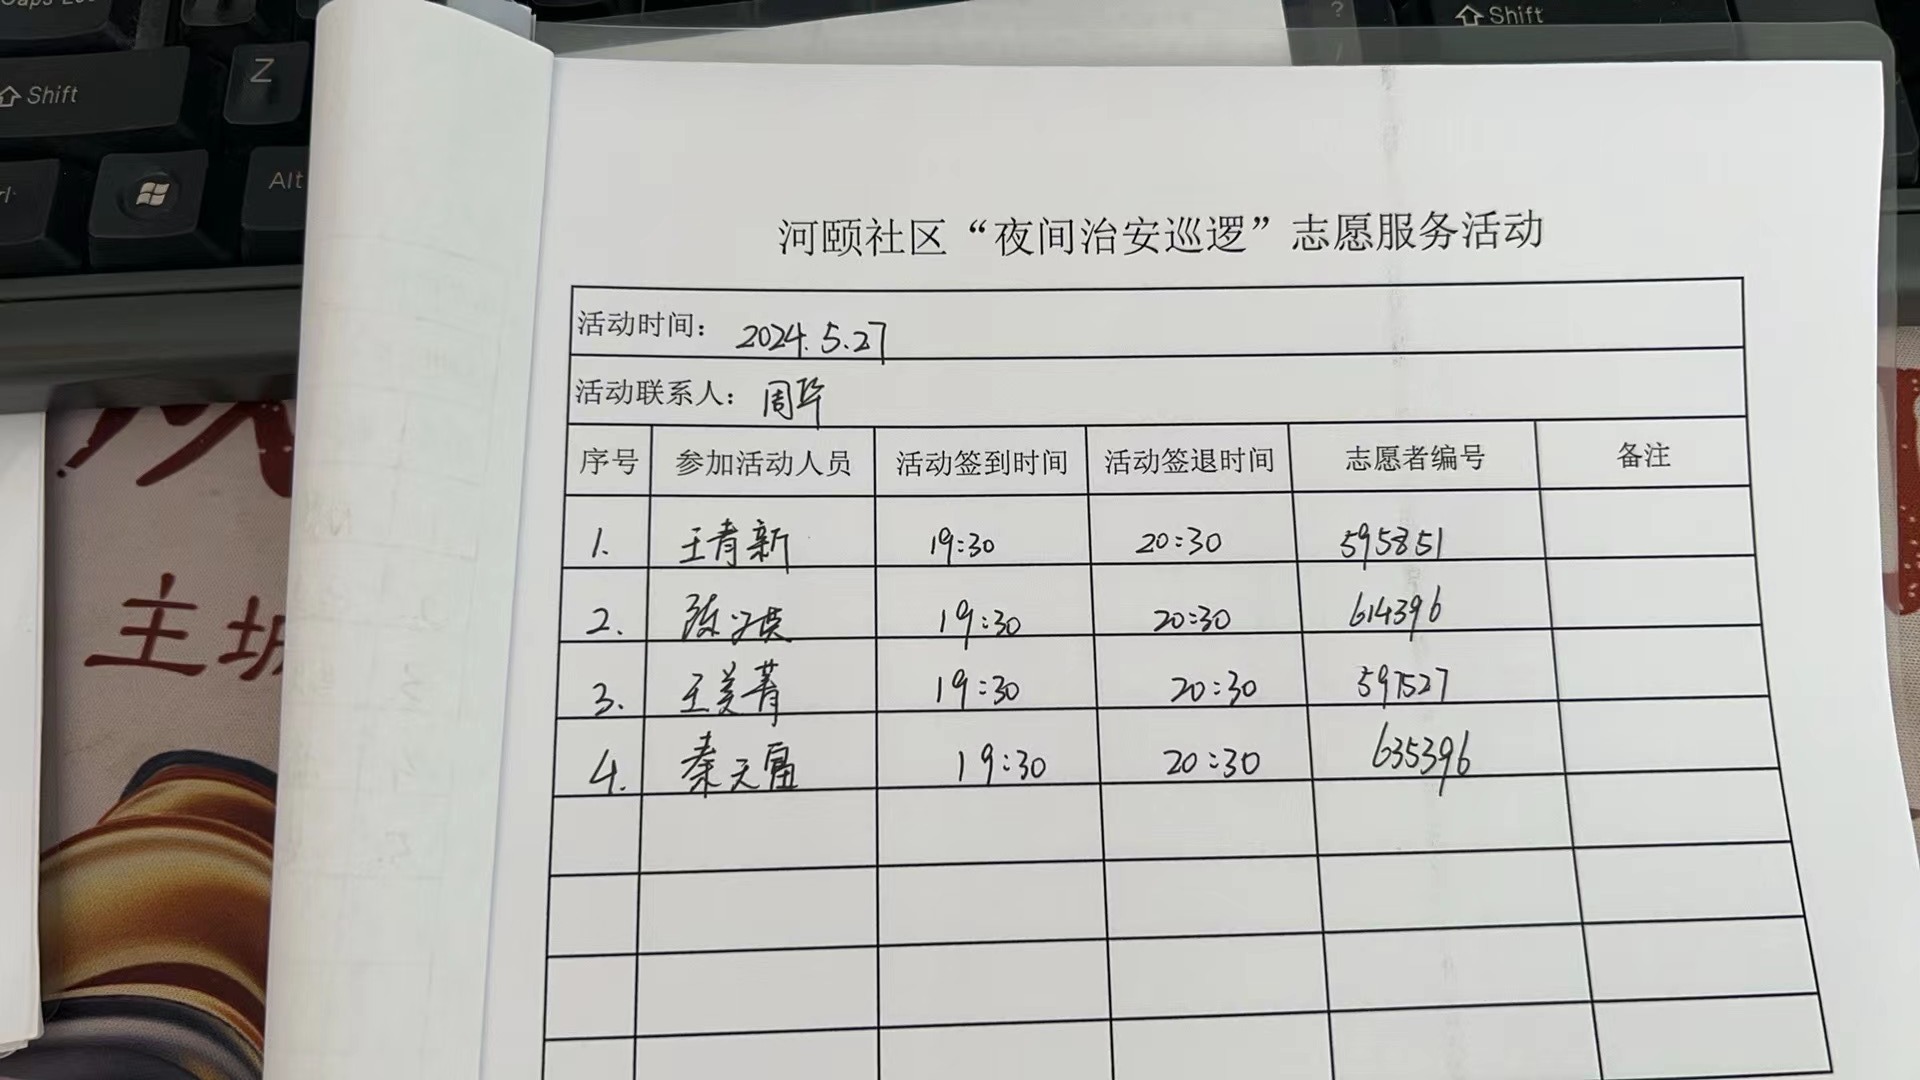 Caps Lock
Shift
Z
Alt
?
/
Shift
主城
河颐社区“夜间治安巡逻”志愿服务活动
活动时间： 2024.5.27
活动联系人： 周华
序号 参加活动人员 活动签到时间 活动签退时间 志愿者编号 备注
1. 王青新 19:30 20:30 595851
2. 陈 19:30 20:30 614396
3. 王美菁 19:30 20:30 597527
4. 秦元富 19:30 20:30 635396